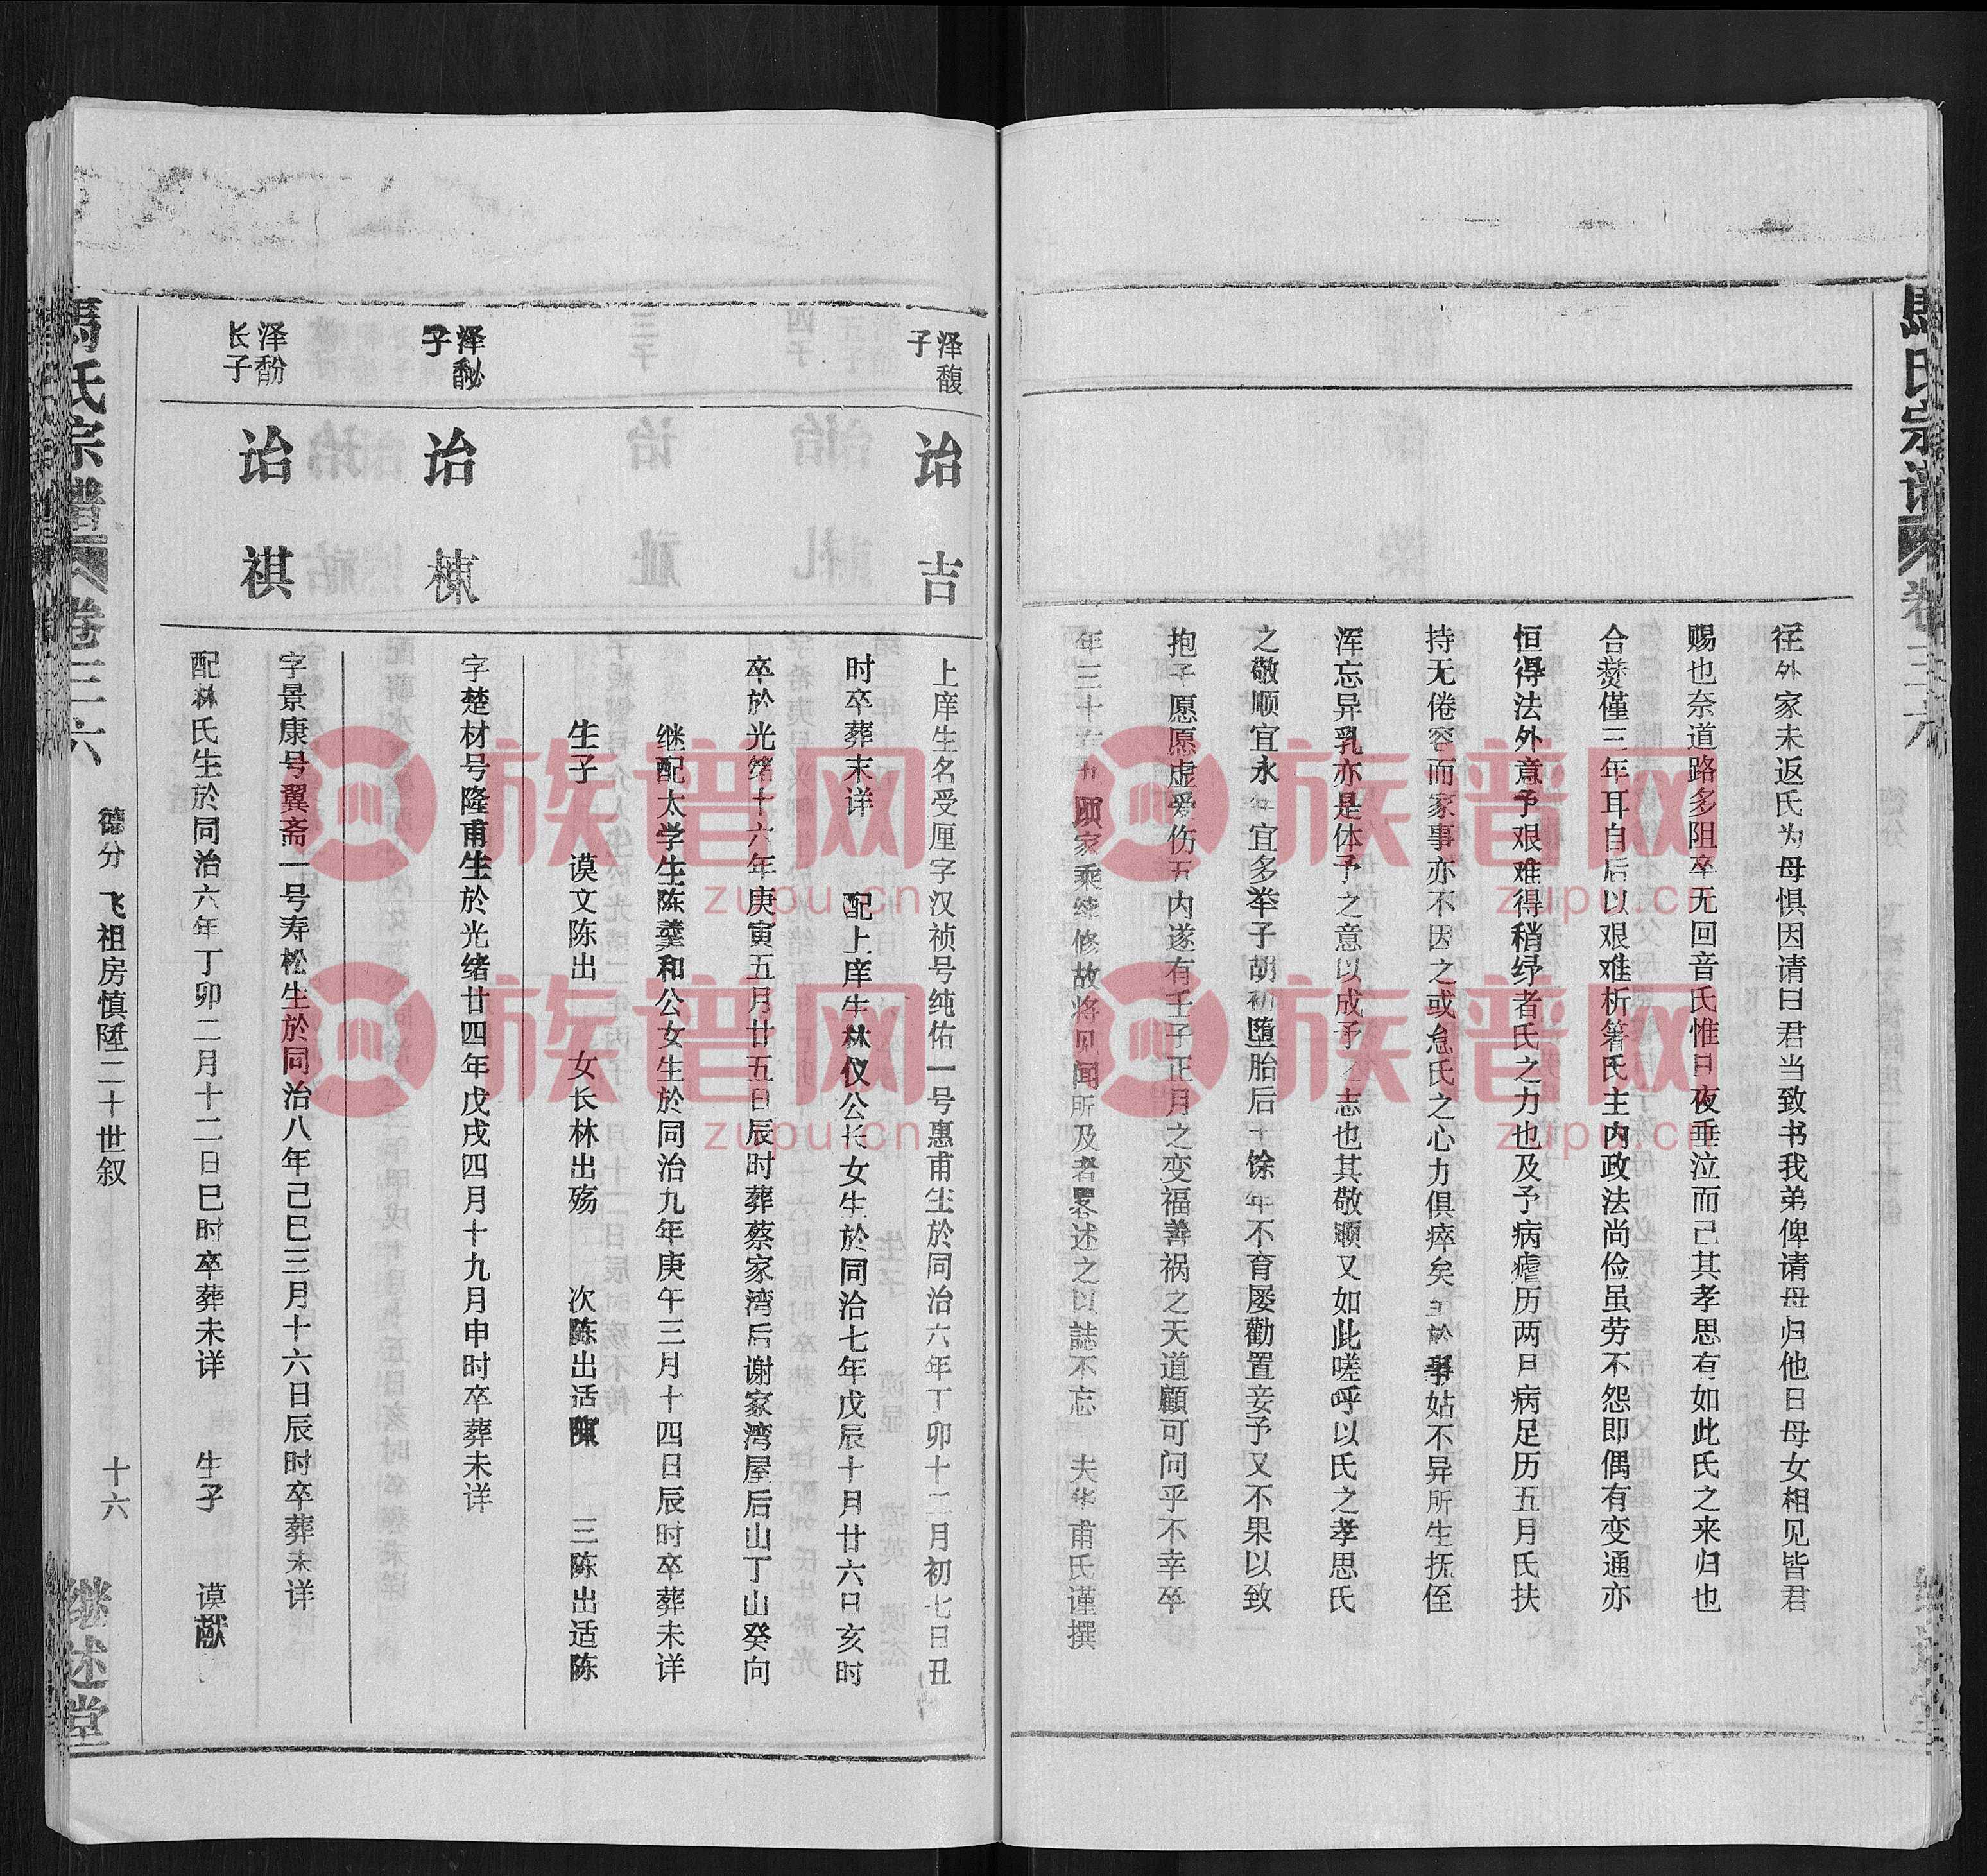 馬氏宗谱 卷三六
往外家未返氏为母惧因请曰君当致书我弟俾请母归他日母女相见皆君
赐也奈道路多阻卒无回音氏惟日夜垂泣而已其孝思有如此氏之来归也
合爨僅三年耳自后以艰难析箸氏主内政法尚俭虽劳不怨即偶有变通亦
恒得法外意予艰难得稍纾者氏之力也及予病瘧历两日病足历五月氏扶
持无倦容而家事亦不因之或怠氏之心力俱瘁矣至於事姑不异所生抚侄
浑忘异乳亦是体予之意以成予之志也其敬顺又如此嗟呼以氏之孝思氏
之敬顺宜永年宜多举子胡初堕胎后十馀年不育屡勸置妾予又不果以致
抱子愿愿虚爱伤五内遂有壬子正月之变福善祸之天道顧可问乎不幸卒
年三十有九顾家乘续修故将见闻所及者畧述之以誌不忘 夫华甫氏谨撰
泽馥
子
诒吉
上庠生名受厘字汉祯号纯佑一号惠甫生於同治六年丁卯十二月初七日丑
时卒葬末详 配上庠生林仪公长女生於同治七年戊辰十月廿六日亥时
卒於光绪十六年庚寅五月廿五日辰时葬蔡家湾后谢家湾屋后山丁山癸向
继配太学生陈蓂和公女生於同治九年庚午三月十四日辰时卒葬未详
生子 谟文陈出 女长林出殇 次陈出适陳 三陈出适陈
泽䭉
子
诒楝
字楚材号隆甫生於光绪廿四年戊戌四月十九月申时卒葬未详
泽馚
长子
诒祺
字景康号翼斋一号寿松生於同治八年己巳三月十六日辰时卒葬未详
配林氏生於同治六年丁卯二月十二日巳时卒葬未详 生子 谟献
馬氏宗譜 卷三六
德分 飞祖房慎陲二十世叙
十六
继述堂
族谱网
zupu.cn
族谱网
zupu.cn
族谱网
zupu.cn
族谱网
zupu.cn